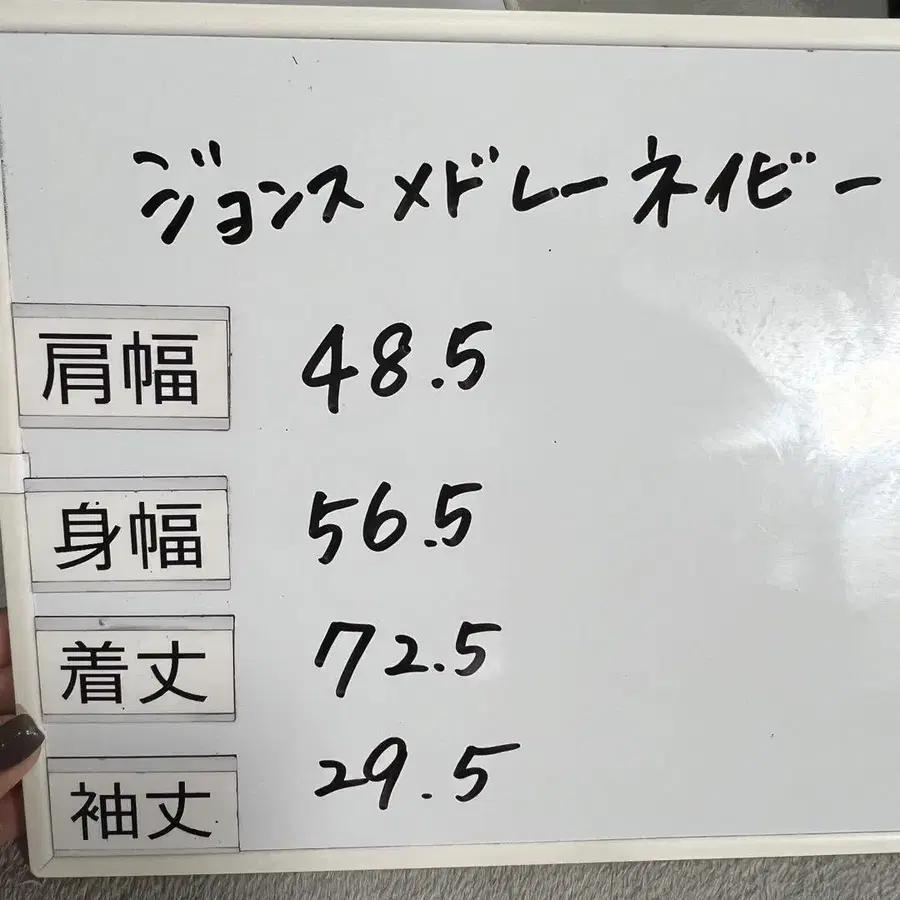 ジョンス メドレー ネイビー
肩幅 48.5
身幅 56.5
着丈 72.5
袖丈 29.5